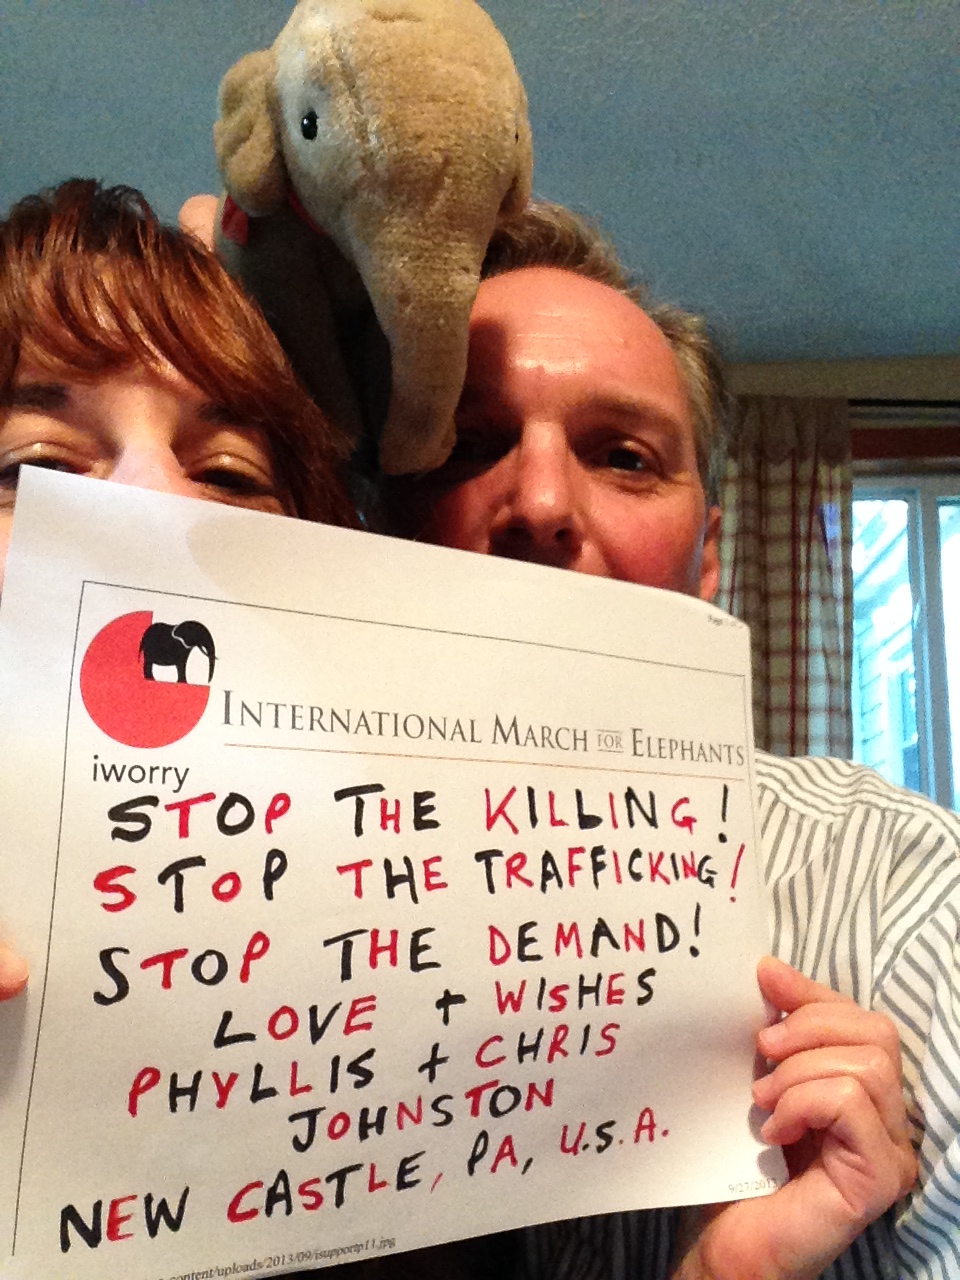 Page 1 of
INTERNATIONAL MARCH FOR ELEPHANTS
iworry
STOP THE KILLING!
STOP THE TRAFFICKING!
STOP THE DEMAND!
LOVE + WISHES
PHYLLIS + CHRIS
JOHNSTON
NEW CASTLE, PA, U.S.A.
9/27/2013
content/uploads/2013/09/isupportp11.jpg